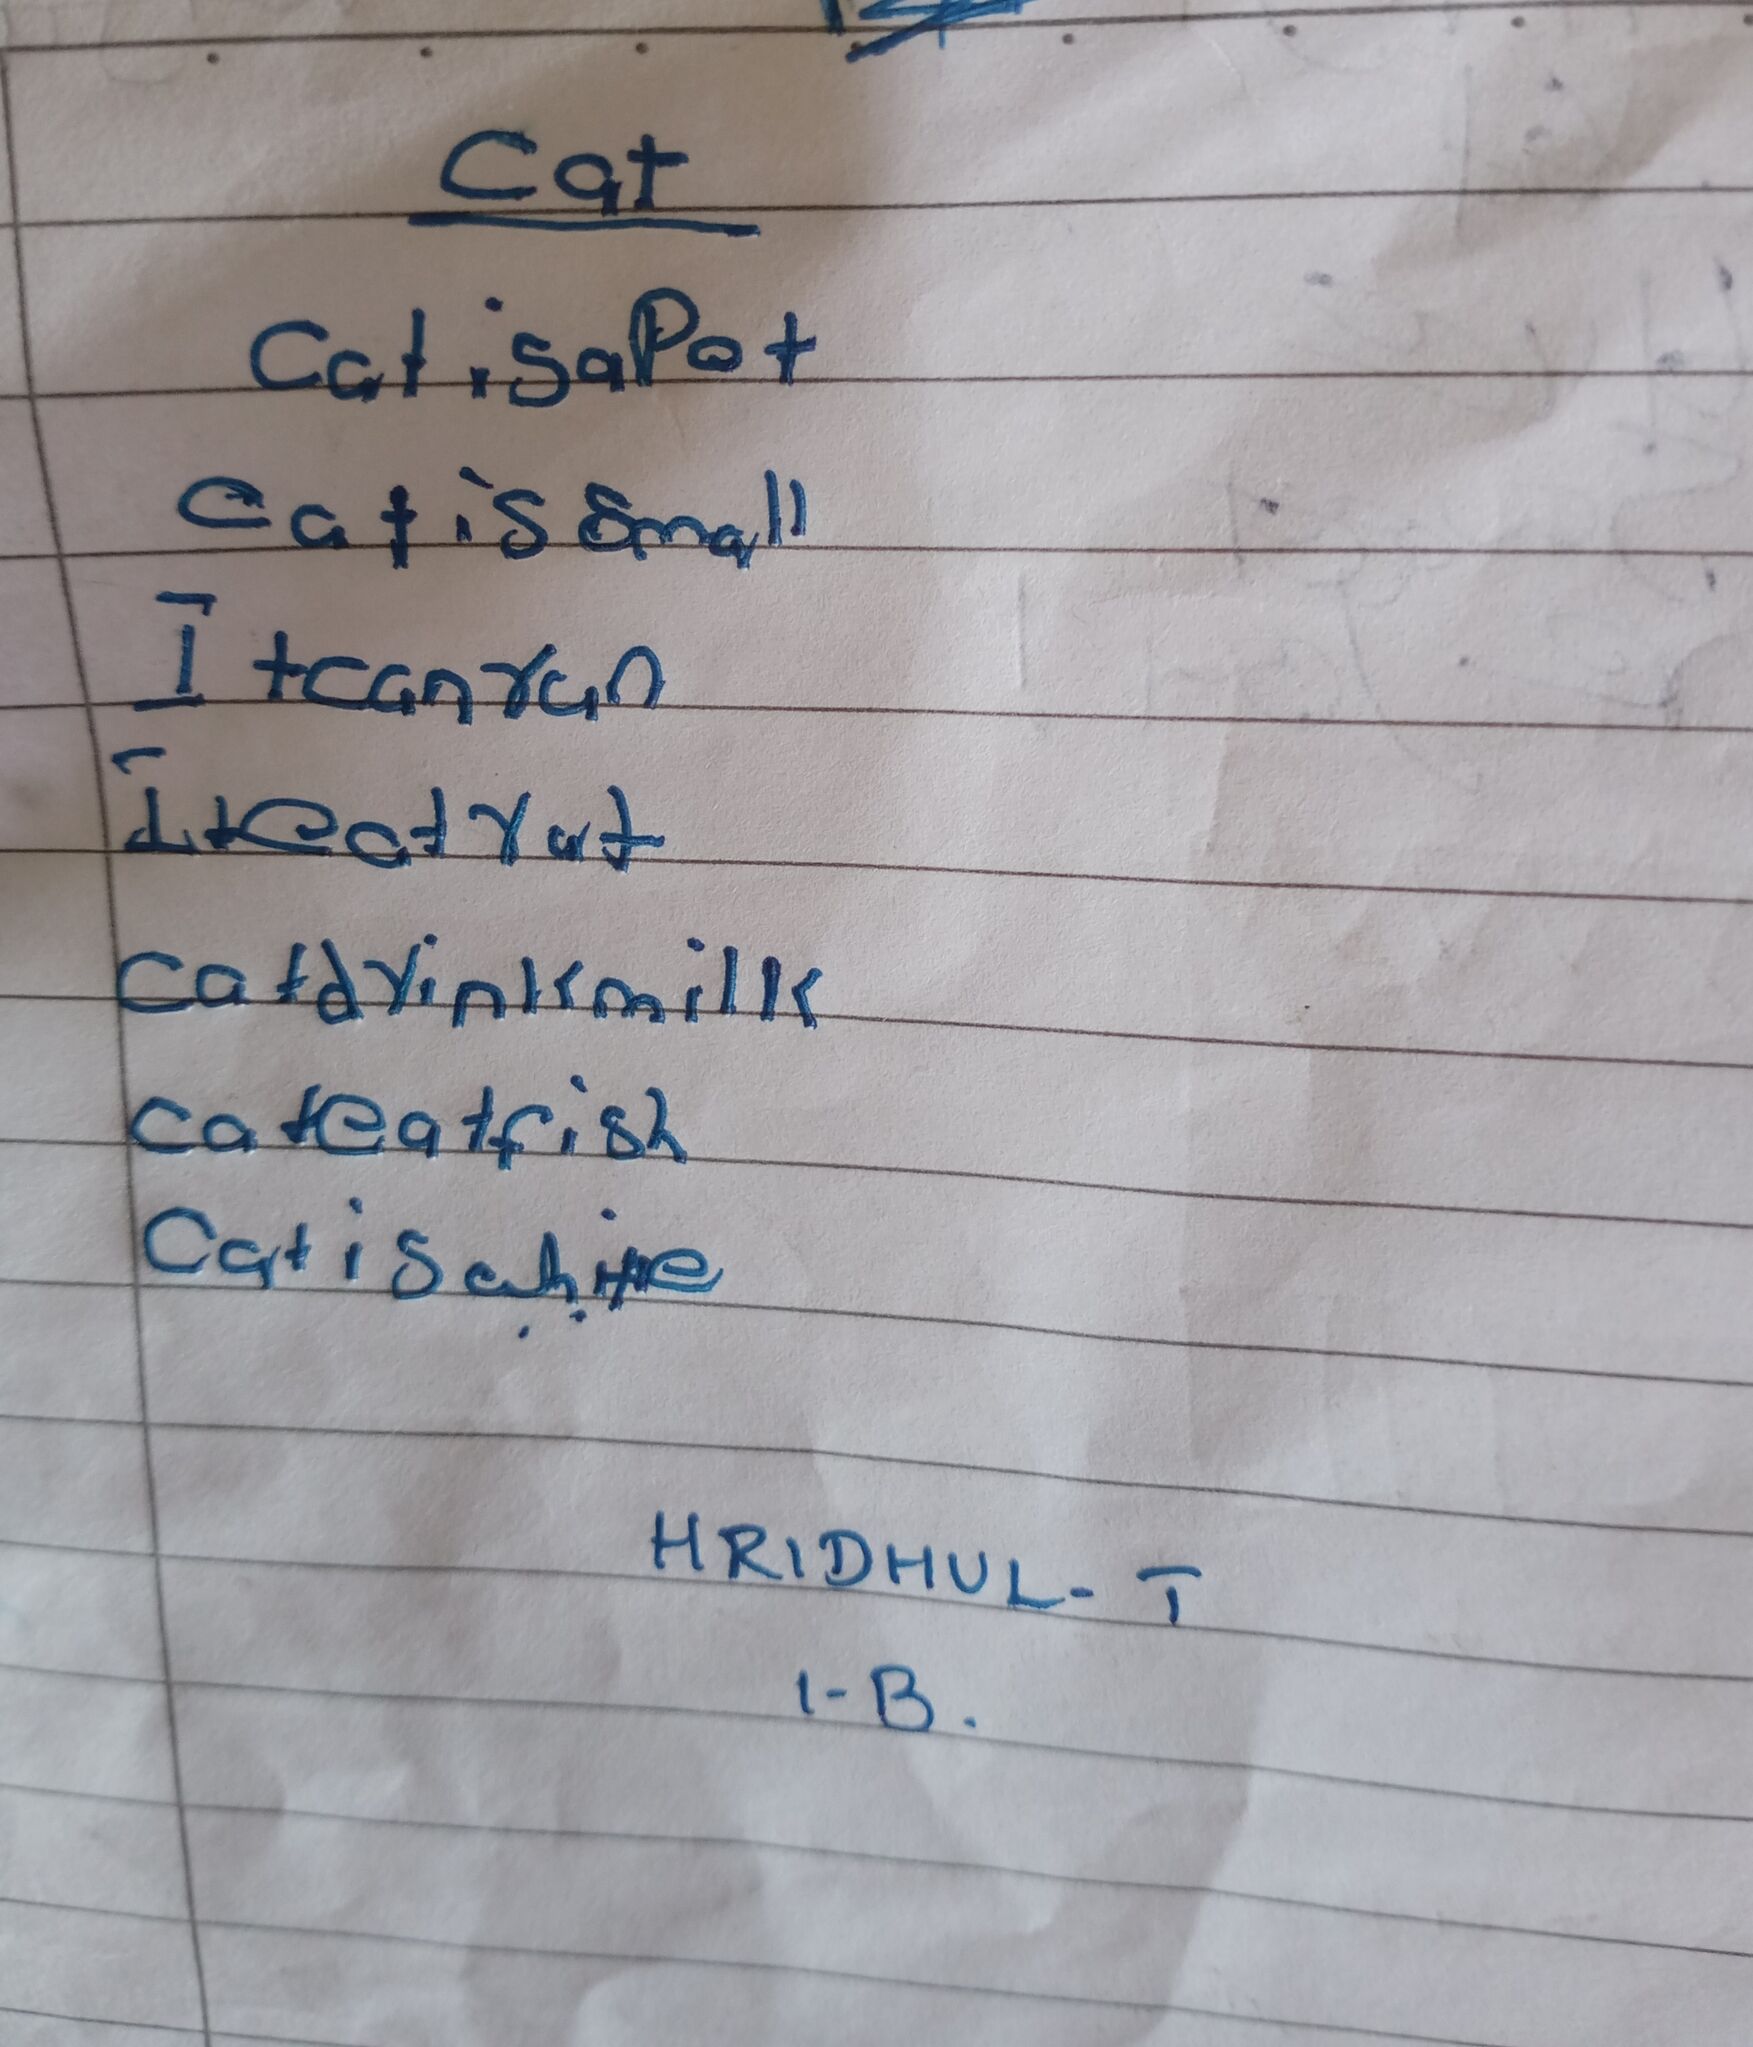 Cat
Cat is a Pot
Cat is small
It can run
It eat rat
cat drink milk
cat eat fish
Cat is a
HRIDHUL- T
1-B.